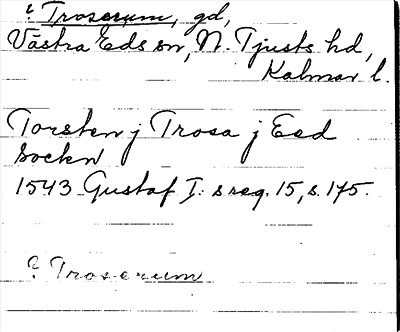 ? Troserum, gd,
Västra Eds sn, N. Tjusts hd,
Kalmar l.
Torsten j Trosa j Eed
sockn
1543 Gustaf I:s reg. 15, s. 175.
? Troserum